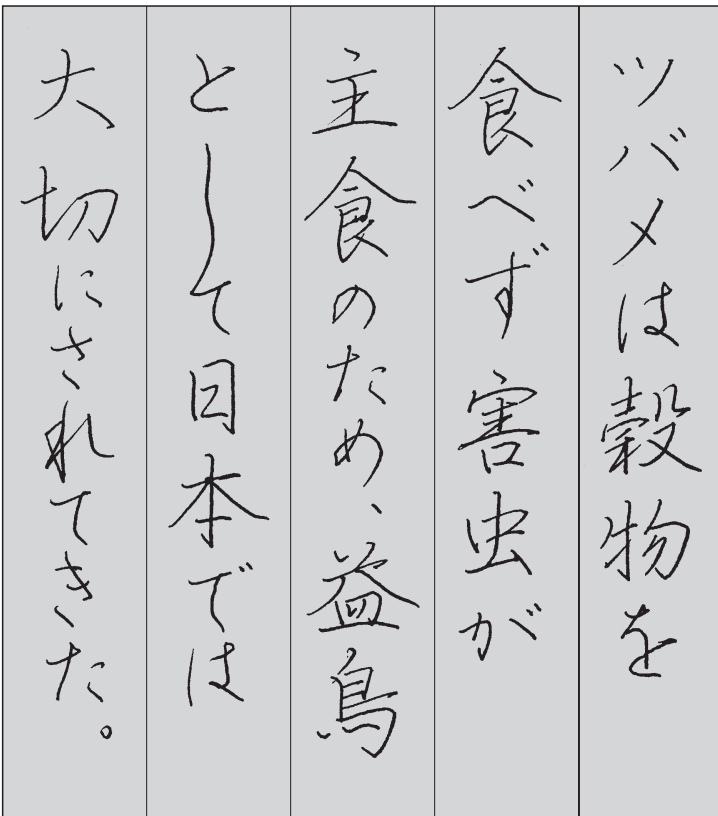 ツバメは穀物を
食べず害虫が
主食のため、益鳥
として日本では
大切にされてきた。